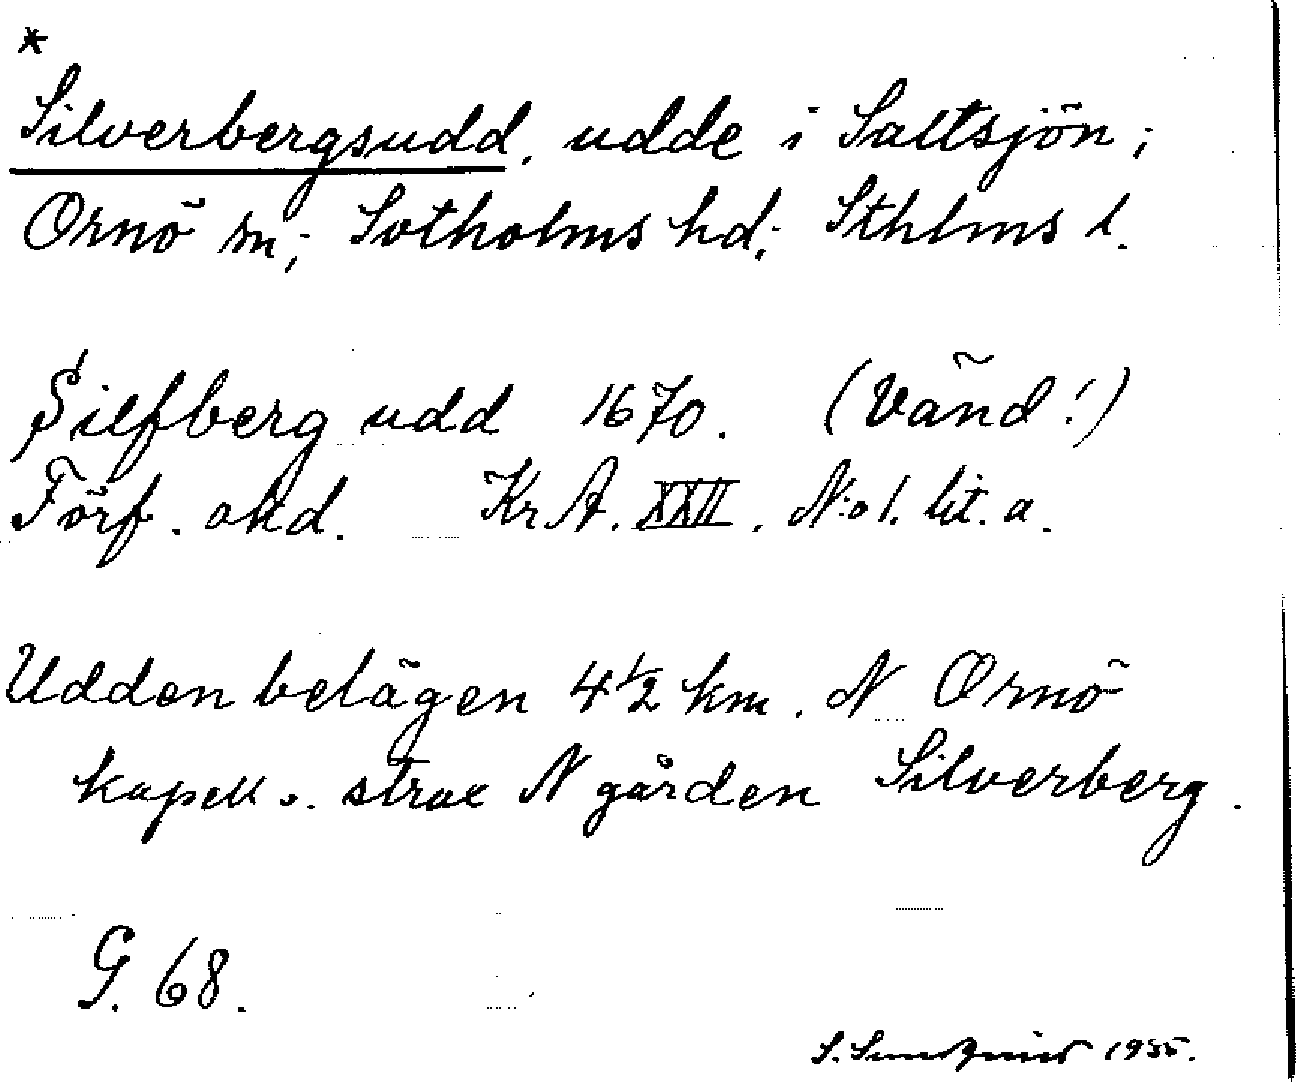 *
Silverbergsudd, udde i Saltsjön;
Ornö sn; Sotholms hd; Sthlms l.
Silfberg udd 1670. (Vänd!)
Förf. okd. KrA. XXII. N:o 1. lit. a.
Udden belägen 4 1/2 km. N Ornö
kapell o. strax N gården Silverberg.
G. 68.
S. 1935.